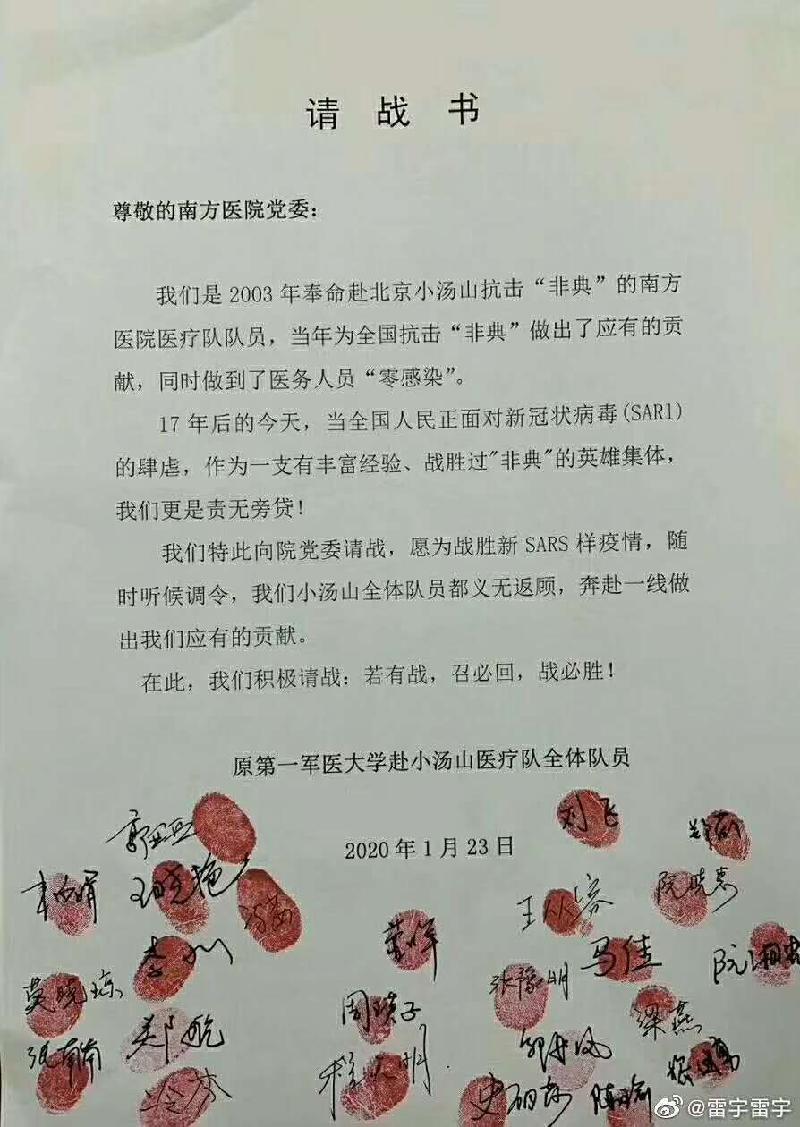 请战书
尊敬的南方医院党委：
我们是2003年奉命赴北京小汤山抗击“非典”的南方
医院医疗队队员，当年为全国抗击“非典”做出了应有的贡
献，同时做到了医务人员“零感染”。
17年后的今天，当全国人民正面对新冠状病毒(SARI)
的肆虐，作为一支有丰富经验、战胜过"非典"的英雄集体，
我们更是责无旁贷！
我们特此向院党委请战，愿为战胜新SARS样疫情，随
时听候调令，我们小汤山全体队员都义无返顾，奔赴一线做
出我们应有的贡献。
在此，我们积极请战：若有战，召必回，战必胜！
原第一军医大学赴小汤山医疗队全体队员
刘飞
2020年1月23日
阮晓惠
李川
马佳
张豫明
莫晓琼
周瑱子
梁燕
郑航
张南南
@雷宇雷宇